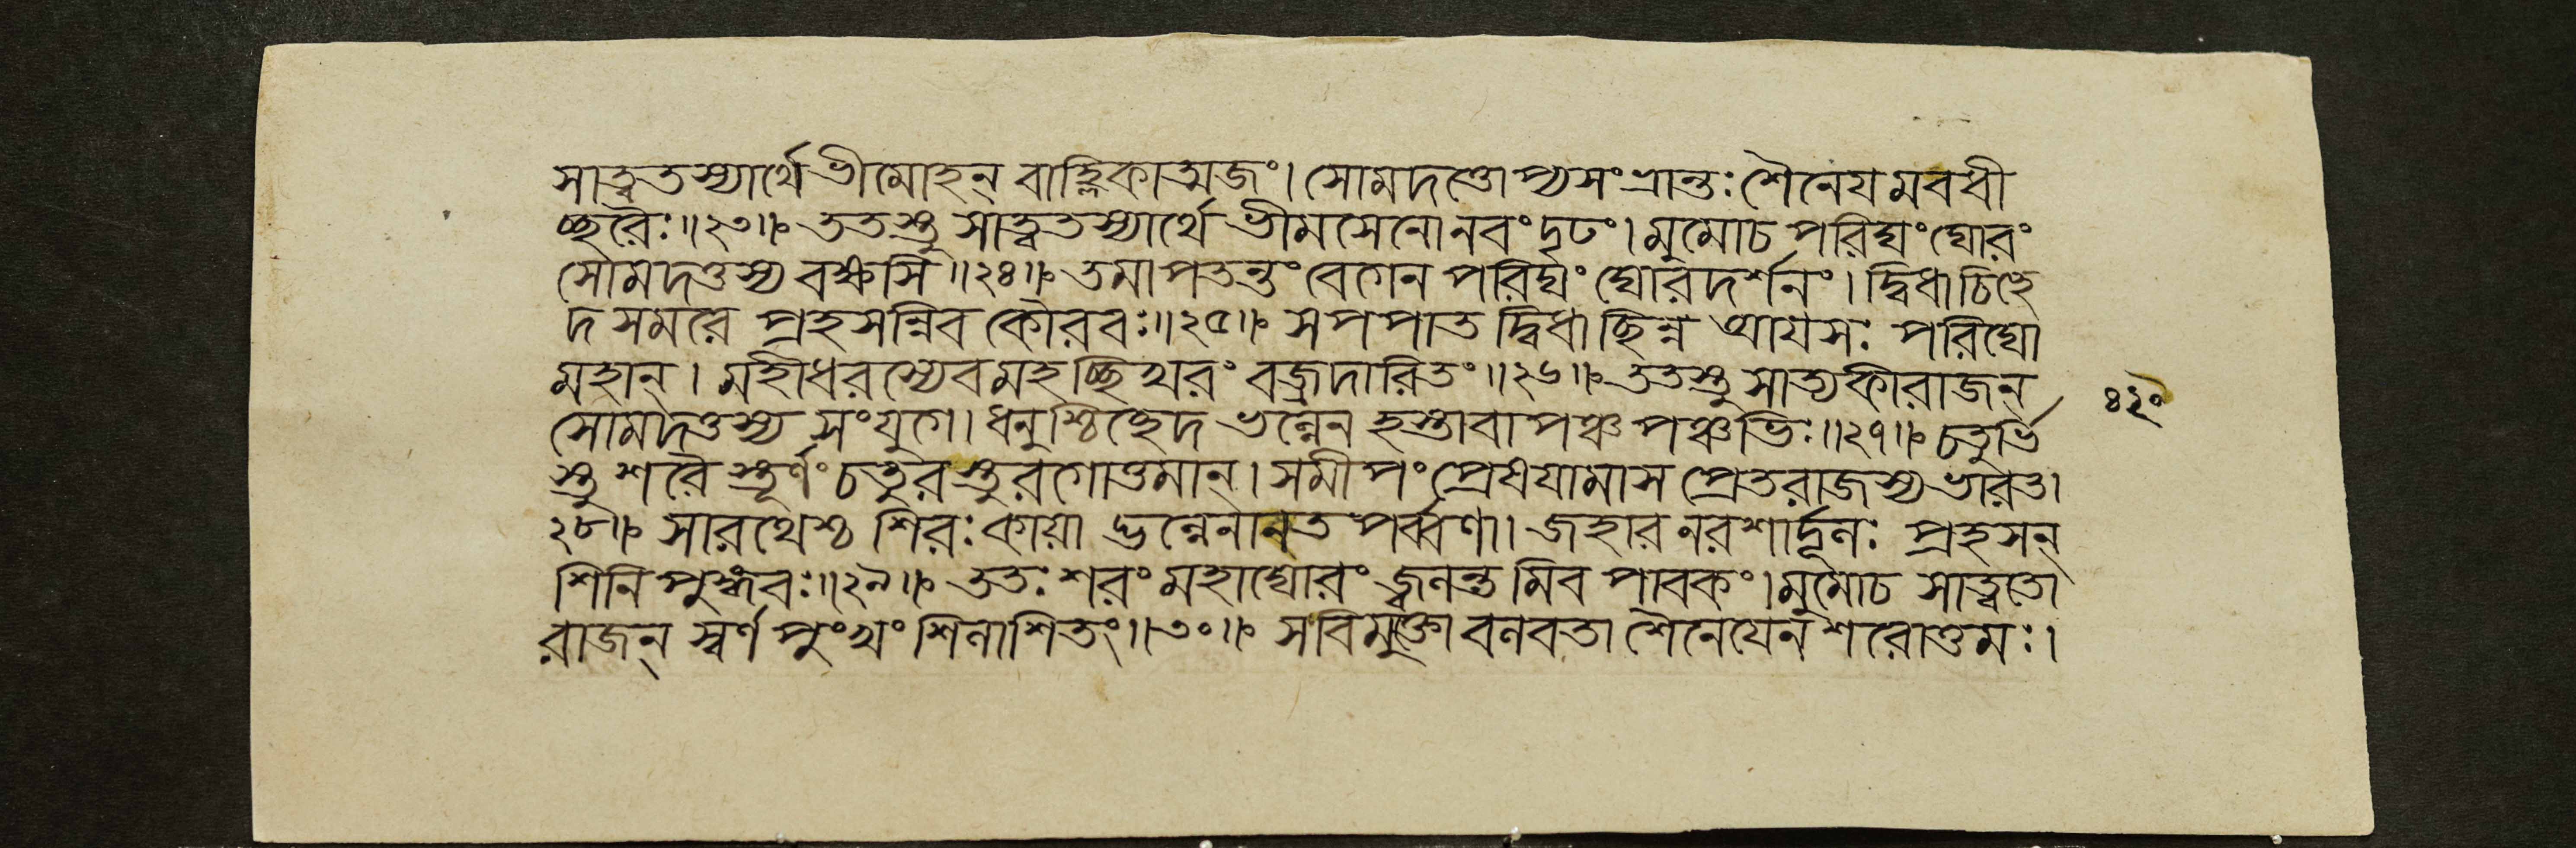 সাত্বতস্যার্থে ভীমোহন্ বাহ্লিকাত্মজং। সোমদত্তোপ্যসংভ্রান্তঃ শৈনেয়মবধী
চ্ছরৈঃ॥২৩॥ ততস্তু সাত্বতস্যার্থে ভীমসেনো নবং দৃঢং। মুমোচ পরিঘং ঘোরং
সোমদত্তস্য বক্ষসি॥২৪॥ তমাপতন্তং বেগেন পরিঘং ঘোরদর্শনং। দ্বিধা চিচ্ছে
দ সমরে প্রহসন্নিব কৌরবঃ॥২৫॥ স পপাত দ্বিধা ছিন্ন আয়সঃ পরিঘো
মহান্। মহীধরস্যেব মহচ্ছিখরং বজ্রদারিতং॥২৬॥ ততস্তু সাত্যকী রাজন্
সোমদত্তস্য সংযুগে। ধনুশ্চিচ্ছেদ ভল্লেন হস্তাবাপঞ্চ পঞ্চভিঃ॥২৭॥ চতুর্ভি
স্তু শরৈ স্তূর্ণং চতুরস্তুরগোত্তমান্। সমীপং প্রেষয়ামাস প্রেতরাজস্য ভারত।
২৮॥ সারথেশ্চ শিরঃ কায়া দ্ভল্লেনানত পর্ব্বণা। জহার নরশার্দ্দূলঃ প্রহসন্
শিনি পুঙ্গবঃ॥২৯॥ ততঃ শরং মহাঘোরং জ্বলন্তমিব পাবকং। মুমোচ সাত্বতো
রাজন্ স্বর্ণপুংখং শিলাশিতং॥৩০॥ স বিমুক্তো বলবতা শৈনেয়েন শরোত্তমঃ।
৪২০